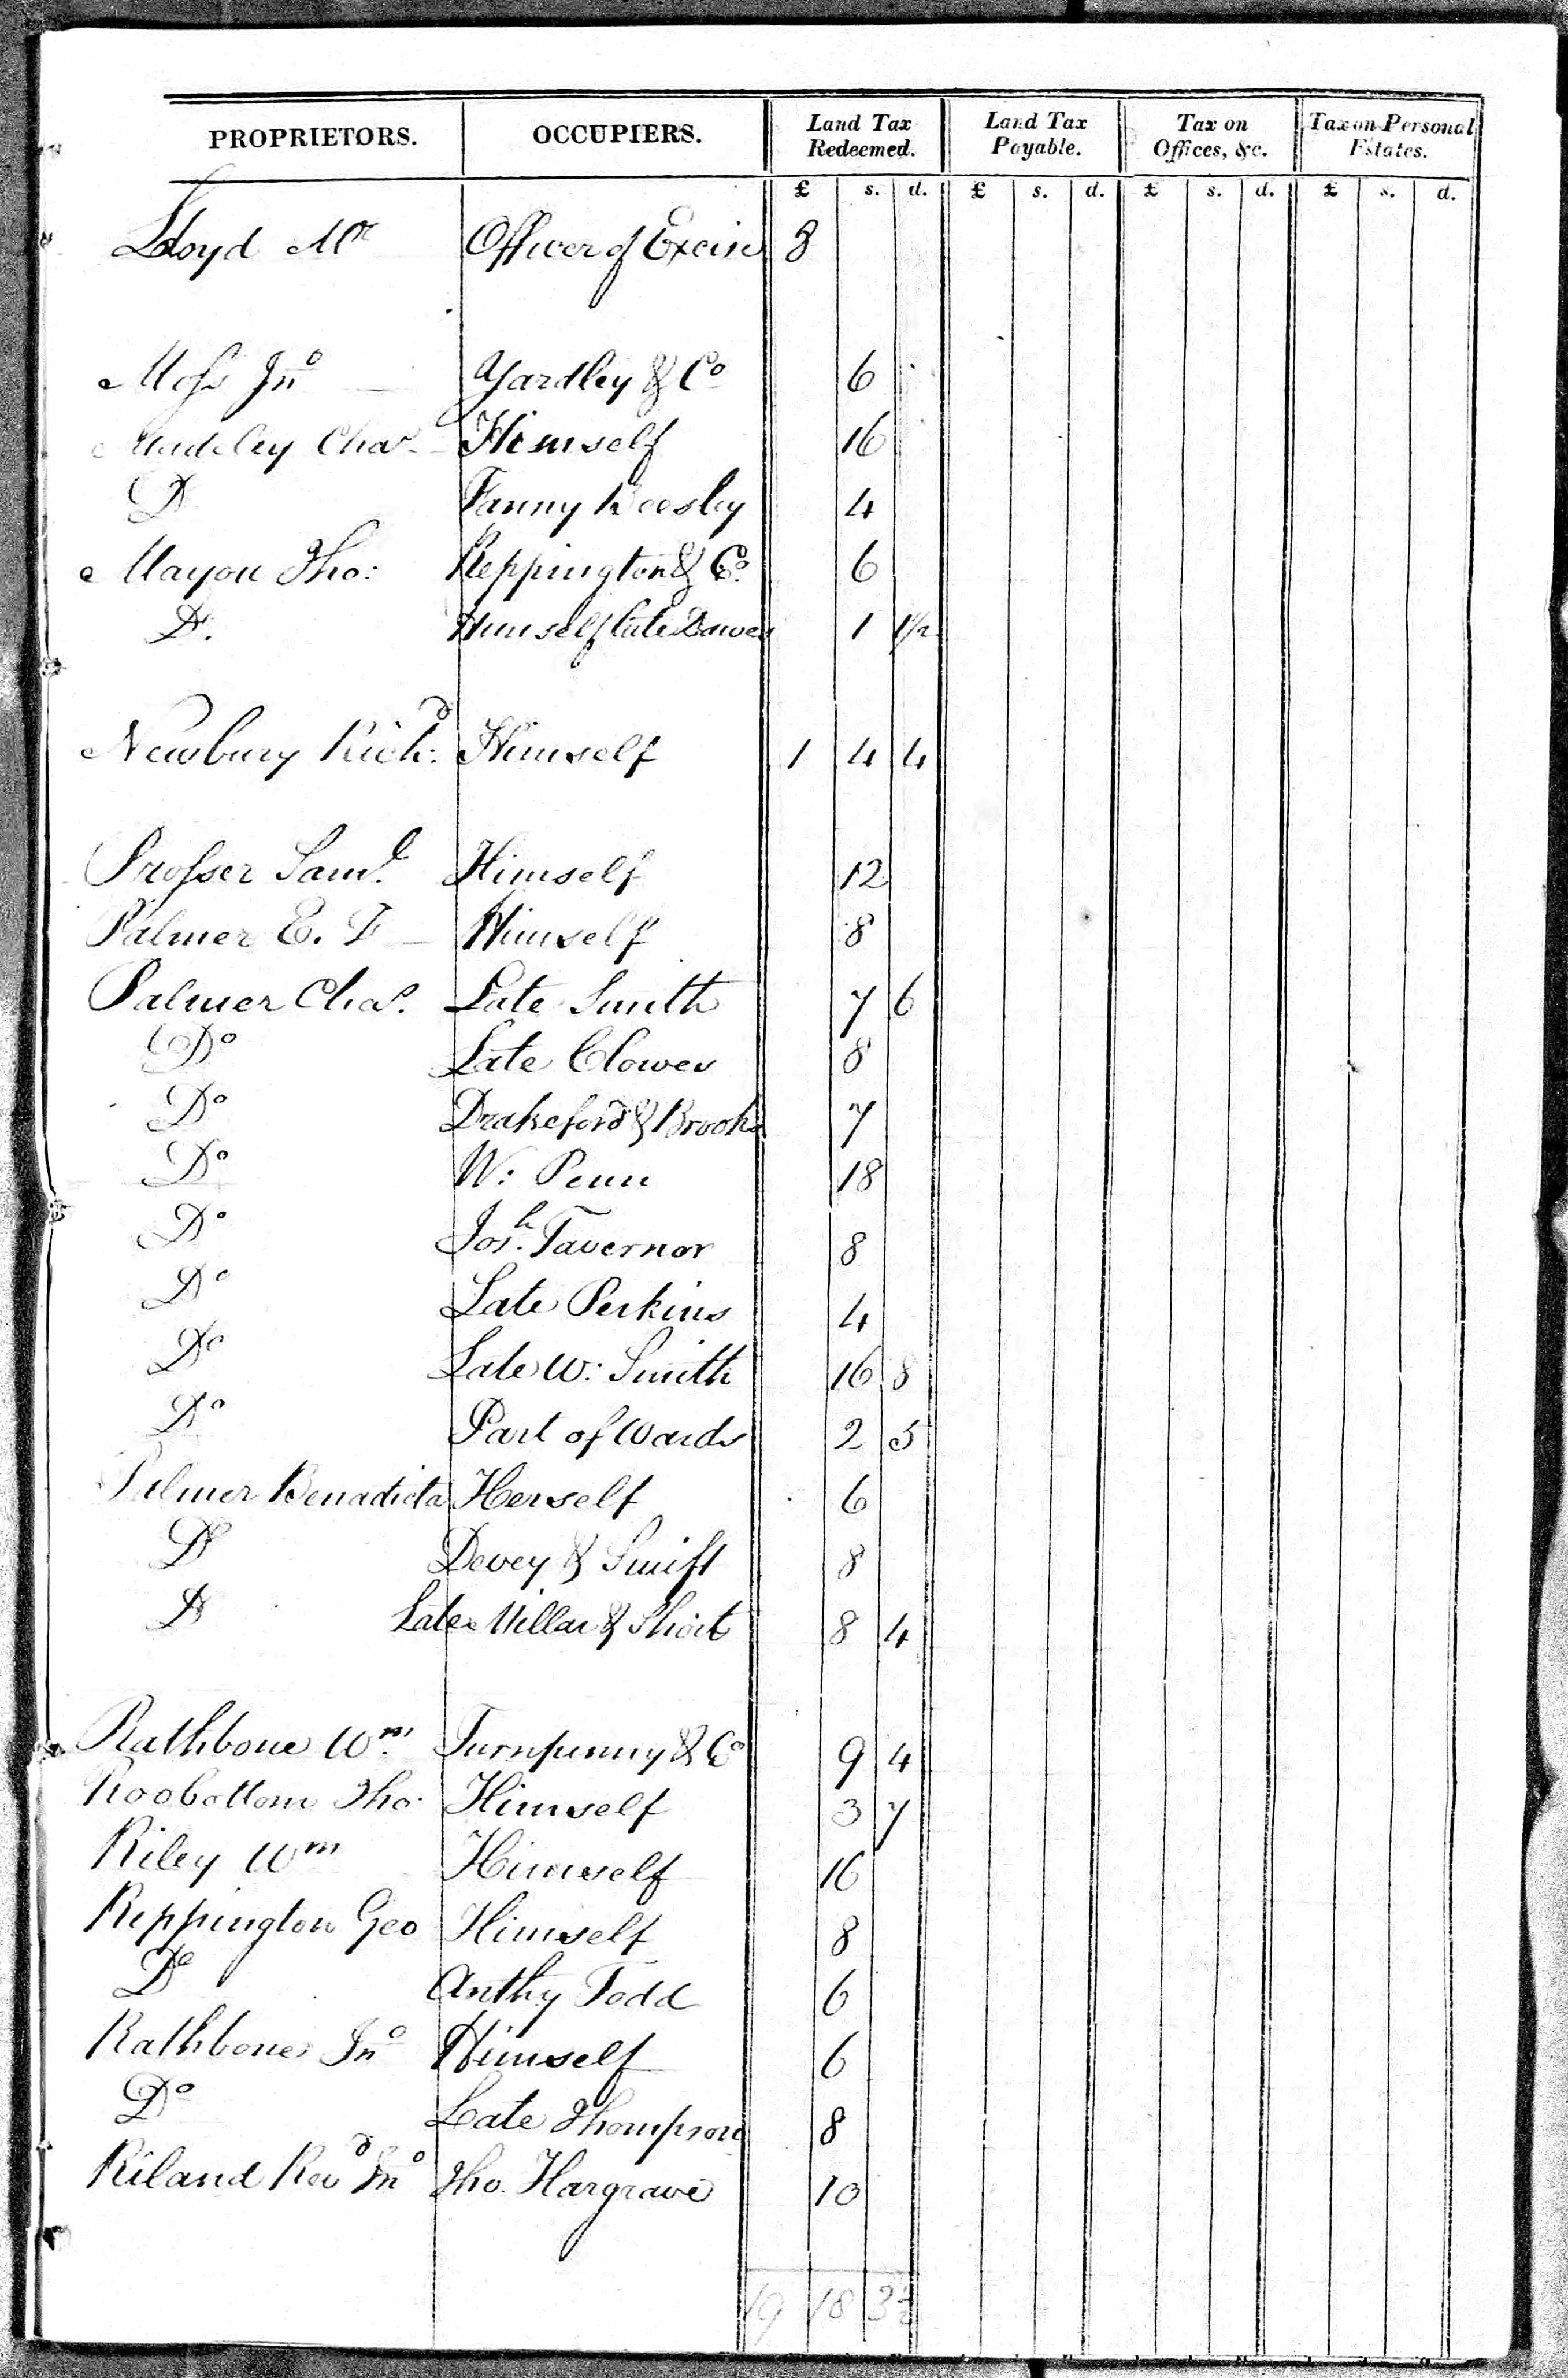 PROPRIETORS. OCCUPIERS. Land Tax Redeemed. Land Tax Payable. Tax on Offices, &c. Tax on Personal Estates.
£ s. d. £ s. d. £ s. d. £ s. d.
Lloyd Mr Officer of Excise 8
Moss Jno Yardley & Co 6
Chas Himself 16
Do Fanny 4
Mayou Tho: Reppington & Co. 6
Do. Himself late Dawes 1 1½
Newbury Richd: Himself 1 4 4
Prosser Saml. Himself 12
Palmer E. F Himself 8
Palmer Chas. Late Smith 7 6
Do Late Clowes 8
Do Drakeford & Brooks 7
Do W: Penn 18
Do Josh. Tavernor 8
Do Late Perkins 4
Do Late W: Smith 16 8
Do Part of Wards 2 5
Palmer Benadicta Herself 6
Do Devey & Swift 8
Do Late Millar & Short 8 4
Rathbone Wm. Turnpenny & Co 9 4
Roobottom Tho Himself 3 7
Riley Wm Himself 16
Reppington Geo Himself 8
Do Anthy Todd 6
Rathbone Jno Himself 6
Do Late Thompson 8
Riland Revd Jno Tho. Hargrave 10
19 18 3½